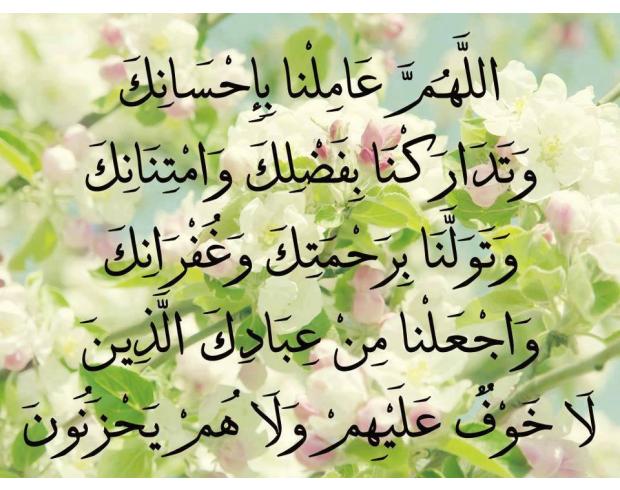 اللَّهُمَّ عَامِلْنا بِإِحْسَانِكَ
وَتَدَارَكْنَا بِفَضْلِكَ وَامْتِنَانِكَ
وَتَوَلَّنَا بِرَحْمَتِكَ وَغُفْرَانِكَ
وَاجْعَلْنا مِنْ عِبَادِكَ الَّذِينَ
لَا خَوْفٌ عَلَيْهِمْ وَلَا هُمْ يَحْزَنُونَ